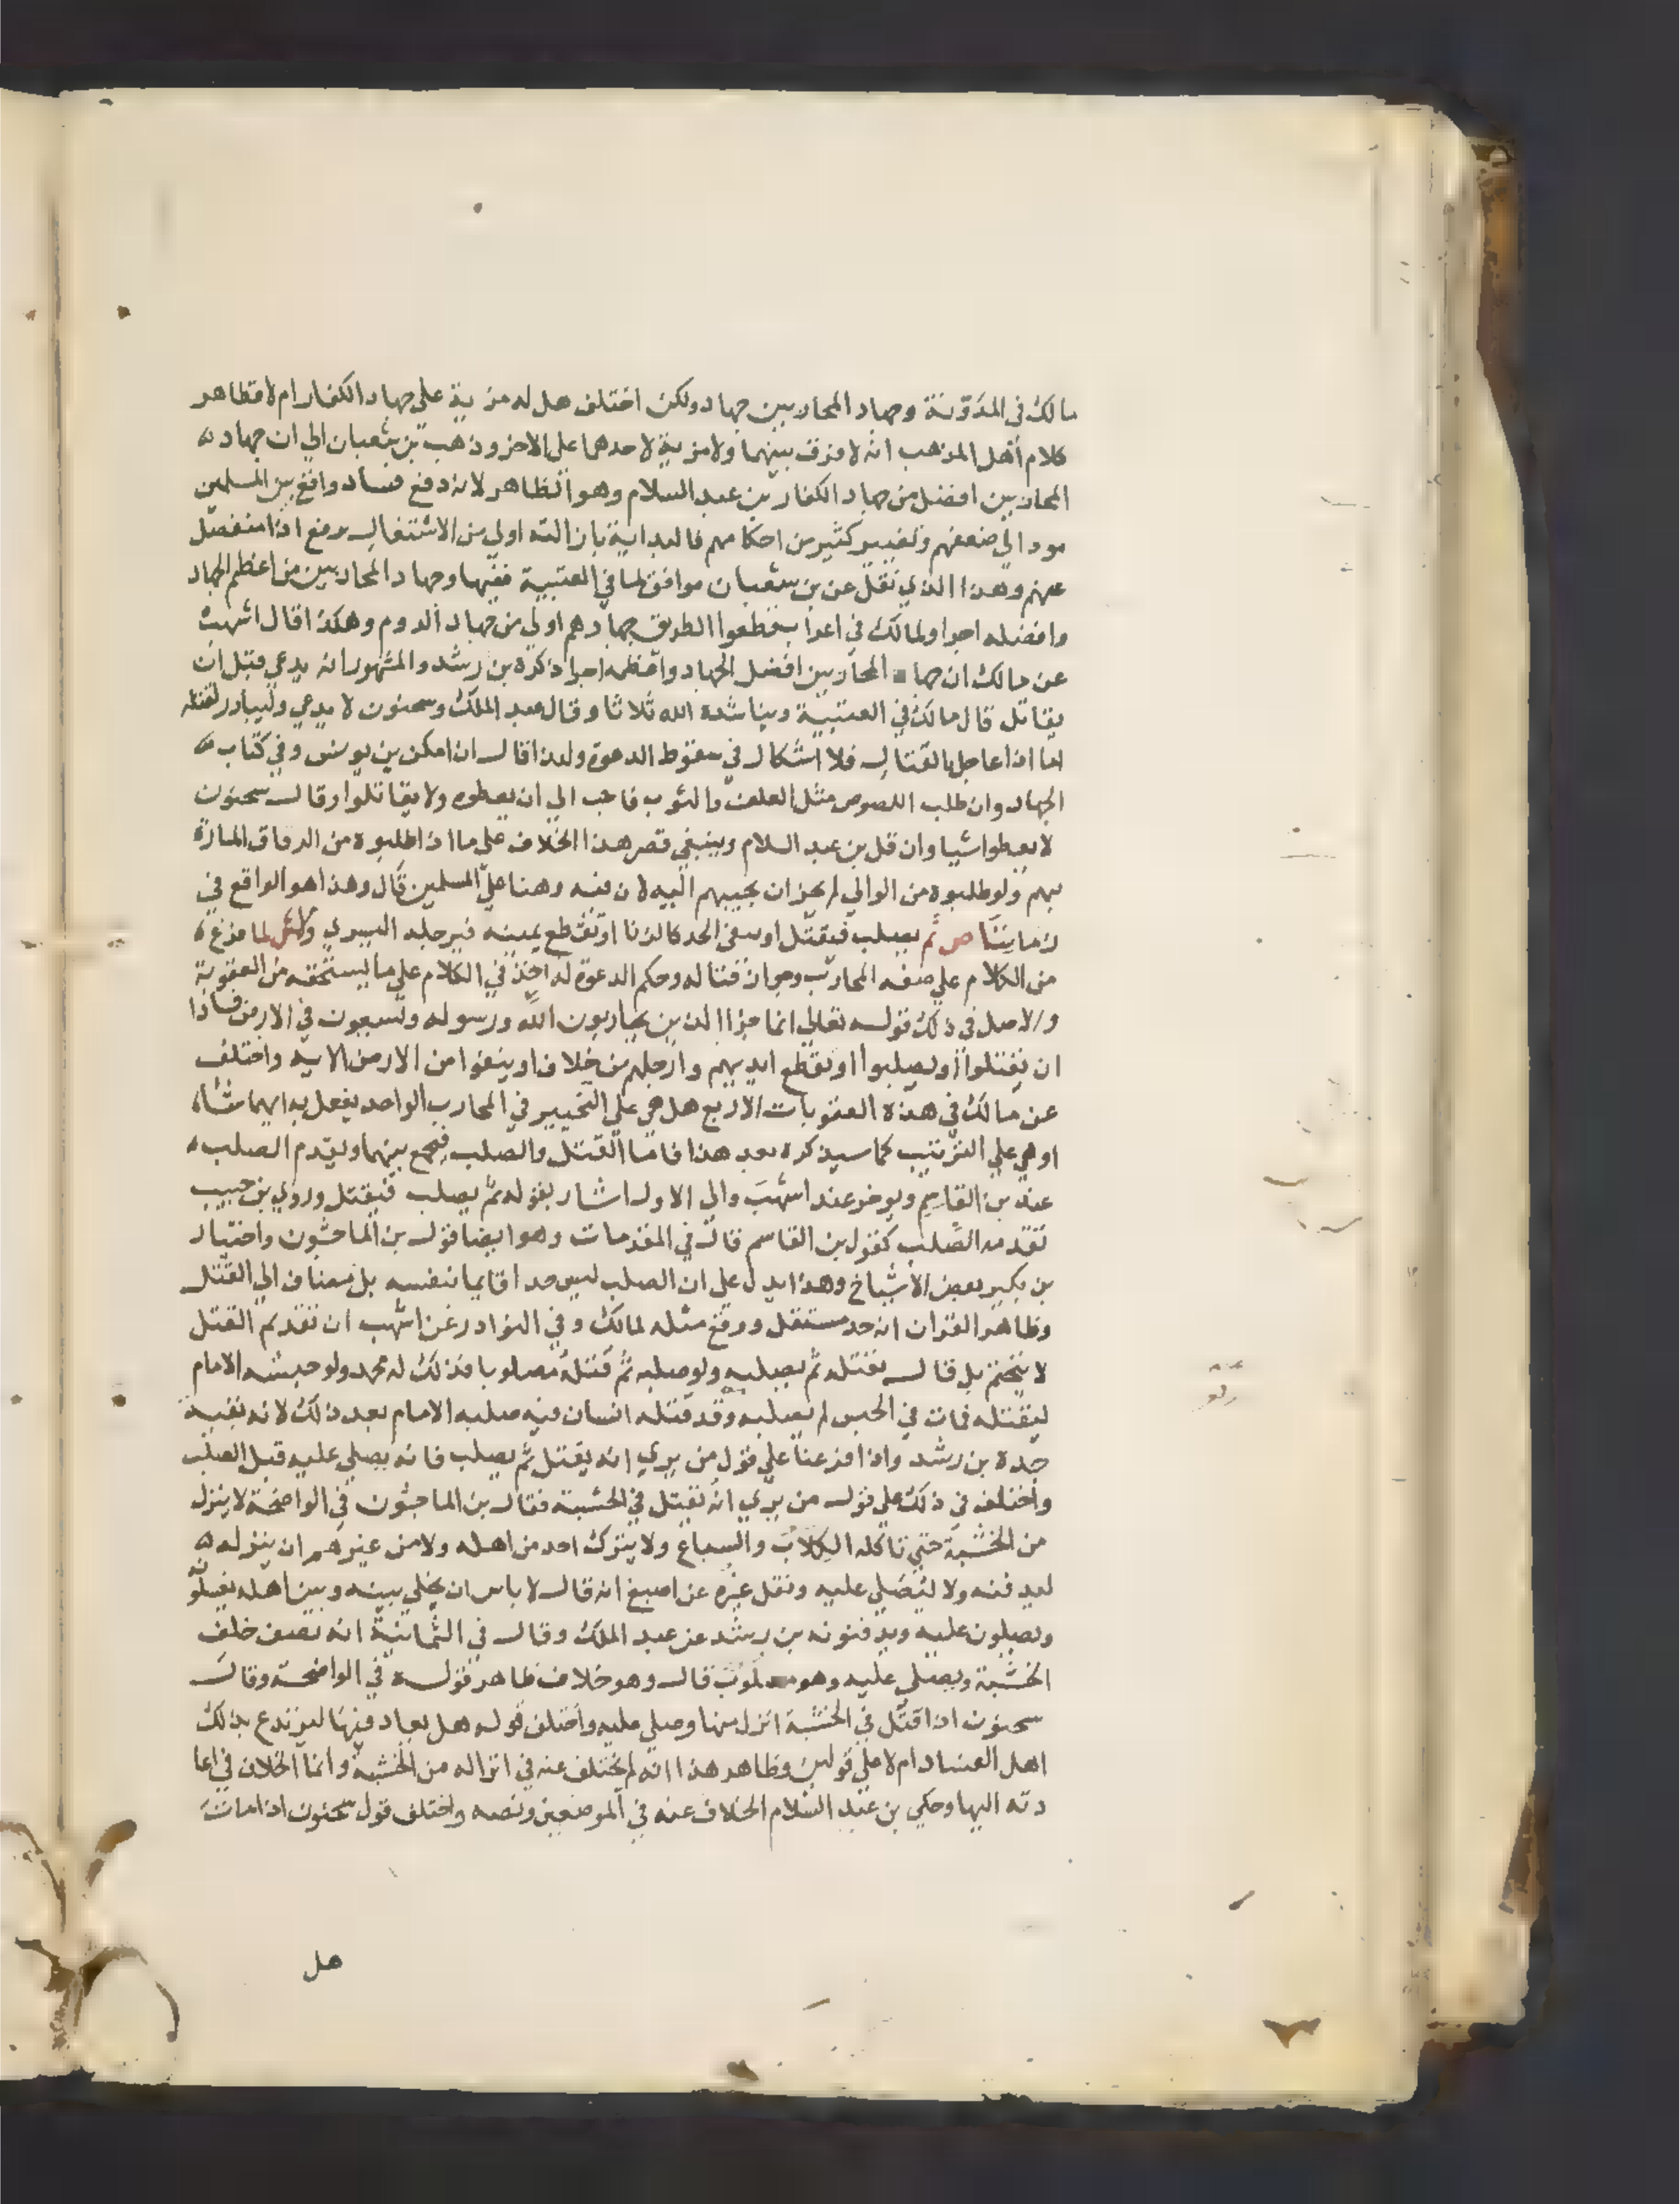 مالك في المدونة وجهاد المحاربين جهاد ولكن اختلف هل له مزية على جهاد الكفار ام لا فظاهر
كلام أهل المذهب انه لا فرق بينهما ولا مزية لاحدهما على الاخر وذهب بن شعبان الي ان جهاد
المحاربين افضل من جهاد الكفار بن عبد السلام وهو الظاهر لانه دفع فساد واقع بين المسلمين
مود الي ضعفهم وتغيير كثير من احكامهم فالبداية بازالته اولي من الاشتغال برفع اذا منفصل
عنهم وهذا الذي نقل عن بن شعبان موافق لما في العتبية ففيها وجهاد المحاربين من اعظم الجهاد
وافضله اجرا ولمالك في اعراب قطعوا الطريق جهادهم اولي من جهاد الروم وهكذا قال اشهب
عن مالك ان جها المحاربين افضل الجهاد واعظمه اجرا ذكره بن رشد والمشهور انه يدعي قبل ان
يقاتل قال مالك في العتبية ويناشده الله ثلاثا وقال عبد الملك وسحنون لا يدعي وليبادر لقتله
اما اذا عاجل بالقتال فلا اشكال في سقوط الدعوة ولهذا قال ان امكن بن يونس وفي كتاب
الجهاد وان طلب اللصوص مثل العلف والثوب فاحب الي ان يعطوه ولا يقاتلوا وقال سحنون
لا يعطوا شيا وان قل بن عبد السلام وينبغي قصر هذا الخلاف على ما اذا طلبوه من الرفاق المارة
بهم ولو طلبوه من الوالي لم يجز ان يجيبهم اليه لان فيه وهنا علي المسلمين قال وهذا هو الواقع في
زماننا ص ثم يصلب فيقتل او ينفى الحر كالزنا او تقطع يمينه فرجله اليسري ولاش لما فرغ
من الكلام علي صفة المحارب وجواز قتاله وحكم الدعوة له اخذ في الكلام علي ما يستحقه من العقوبة
والاصل في ذلك قوله تعالي انما جزا الذين يحاربون الله ورسوله ويسعون في الارض فسادا
ان يقتلوا او يصلبوا او تقطع ايديهم وارجلهم من خلاف او ينفوا من الارض الاية واختلف
عن مالك في هذه العقوبات الاربع هل هي علي التخيير في المحارب الواحد يفعل به ايهما شا
او هي علي الترتيب كما سيذكره بعد هذا فاما القتل والصلب فيجمع بينهما ويقدم الصلب
عند بن القاسم ويوخر عند اشهب والي الاول اشار بقوله ثم يصلب فيقتل وروي بن حبيب
تقدمه الصلب كقول بن القاسم قال في المقدمات وهو ايضا قول بن الماجشون واختيار
بن بكير بعض الأشياخ وهذا يدل على ان الصلب ليس حدا قايما بنفسه بل مضاف الي القتل
وظاهر القران انه حد مستقل ووقع مثله لمالك وفي النوادر عن اشهب ان تقديم القتل
لا يتحتم بل قال يقتله ثم يصلبه ولو صلبه ثم قتله مصلوبا فذلك له محمد ولو حبسه الامام
ليقتله فمات في الحبس لم يصلبه وقد قتله انسان فيه صلبه الامام بعد ذلك لانه بقية
حده بن رشد واذا فرعنا علي قول من يري انه يقتل ثم يصلب فانه يصلي عليه قبل الصلب
واختلف في ذلك علي قول من يري انه يقتل في الخشبة فقال بن الماجشون في الواضحة لا ينزل
من الخشبة حتي تاكله الكلاب والسباع ولا يترك احد من اهله ولا من غيرهم ان ينزله
ليدفنه ولا ليصلي عليه ونقل غيره عن اصبغ انه قال لا باس ان يخلي بينه وبين اهله يغسلونه
ويصلون عليه ويدفنونه بن رشد عن عبد الملك وقال في الثمانية انه يصف خلف
الخشبة ويصلي عليه وهو مصلوب قال وهو خلاف ظاهر قوله في الواضحة وقال
سحنون اذا قتل في الخشبة انزل منها وصلي عليه واختلف قوله هل يعاد فيها ليرتدع بذلك
اهل الفساد ام لا علي قولين وظاهر هذا انه لم يختلف عنه في انزاله من الخشبة وانما الخلاف في اعا
دته اليها وحكي بن عبد السلام الخلاف عنه في الموضعين ونصه واختلف قول سحنون اذا مات
هل